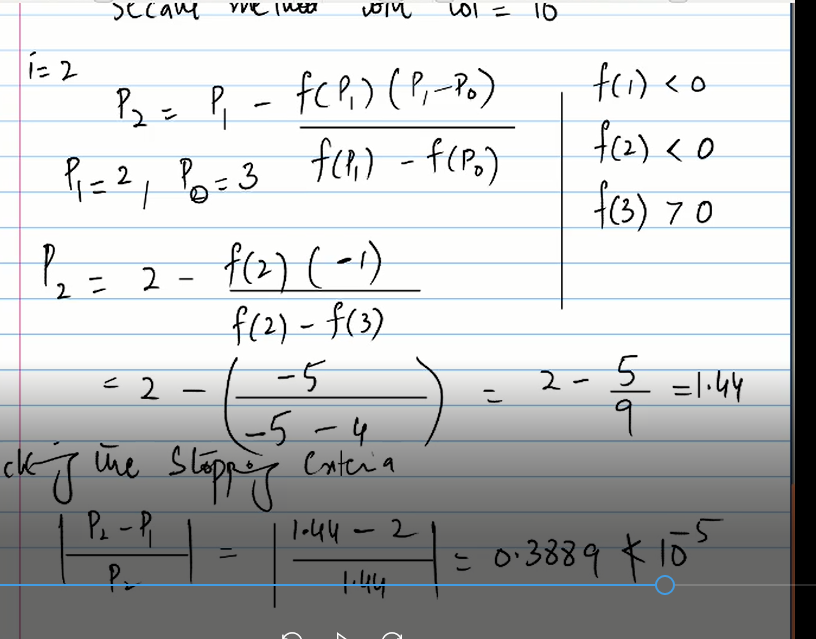 Secant method with tol = 10
i=2
P₂ = P₁ - f(P₁)(P₁-P₀) / f(P₁) - f(P₀)
f(1) < 0
f(2) < 0
f(3) > 0
P₁=2, P₀=3
P₂ = 2 - f(2)(-1) / f(2) - f(3)
= 2 - (-5 / -5 - 4) = 2 - 5/9 = 1.44
cking the Stopping Criteria
|P₂-P₁ / P₂| = |1.44 - 2 / 1.44| = 0.3889 ≮ 10⁻⁵